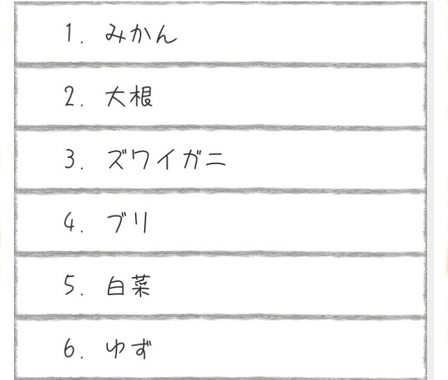 1. みかん
2. 大根
3. ズワイガニ
4. ブリ
5. 白菜
6. ゆず